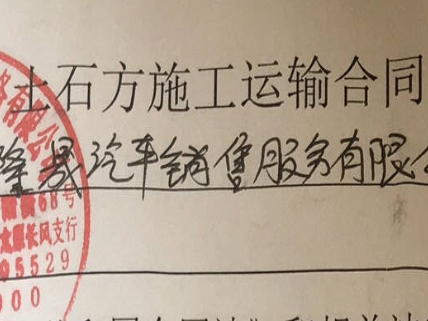 土石方施工运输合同
隆晟汽车销售服务有限
有限公
68号
太原长风支行
05529
000